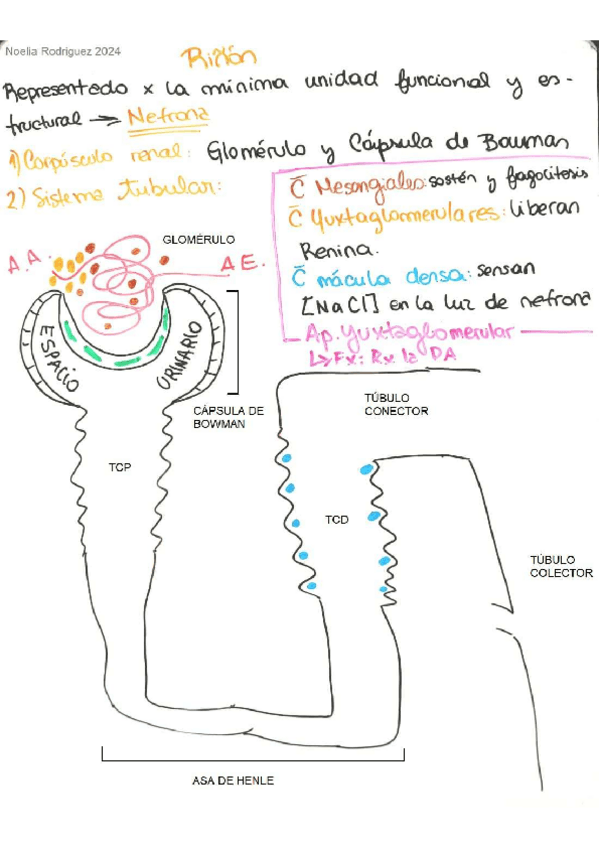 Noelia Rodriguez 2024
Riñón
Representado x la mínima unidad funcional y es-
tructural → Nefrona
1) Corpúsculo renal: Glomérulo y Cápsula de Bowman
2) Sistema tubular:
C̄ Mesangiales: sostén y fagocitosis
C̄ Yuxtaglomerulares: liberan
Renina.
C̄ mácula densa: sensan
[NaCl] en la luz de nefrona
Ap. Yuxtaglomerular
↳ Fx: Rx la PA
GLOMÉRULO
A.A.
A E.
ESPACIO
URINARIO
CÁPSULA DE
BOWMAN
TÚBULO
CONECTOR
TCP
TCD
TÚBULO
COLECTOR
ASA DE HENLE